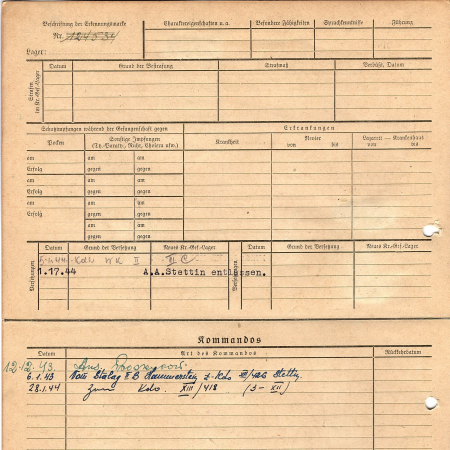 Beschriftung der Erkennungsmarke
Nr.
Lager:
Charaktereigenschaften u.a.
Besondere Fähigkeiten
Sprachkenntnisse
Führung
Strafen im Kr.-Gef.-Lager
Datum
Grund der Bestrafung
Strafmaß
Verbüßt, Datum
Schutzimpfungen während der Gefangenschaft gegen
Erkrankungen
Pocken
Sonstige Impfungen
(Ty.-Paraty., Ruhr, Cholera usw.)
Krankheit
Revier
von bis
Lazarett — Krankenhaus
von bis
am am am
Erfolg gegen gegen
am am am
Erfolg gegen gegen
am am am
Erfolg gegen gegen
am am
gegen gegen
Versetzungen
Datum Grund der Versetzung Neues Kr.-Gef.-Lager
Datum Grund der Versetzung Neues Kr.-Gef.-Lager
WK II II C
1.17.44 A.A.Stettin entlassen.
Kommandos
Datum Art des Kommandos Rückkehrdatum
12.12.43.
6.1.43 Vom Stalag II B Hammerstein z. Kdo Stettin
28.1.44 Zum Kdo. XIII/418